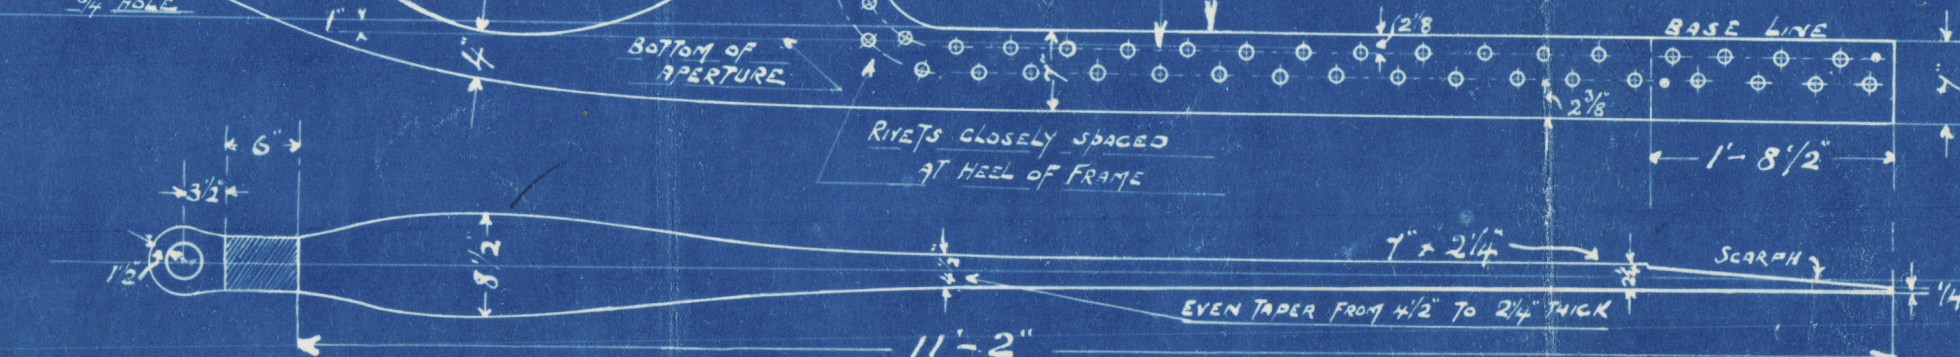 3/4 HOLE
1"
4"
BOTTOM OF
APERTURE
7"
2 1/8
BASE LINE
2 3/8"
RIVETS CLOSELY SPACED
AT HEEL OF FRAME
1'- 8 1/2"
6"
3 1/2"
1 1/2"
8 1/2
4 1/2
7" x 2 1/4"
2 1/4
SCARPH
EVEN TAPER FROM 4 1/2" TO 2 1/4" THICK
11'- 2"